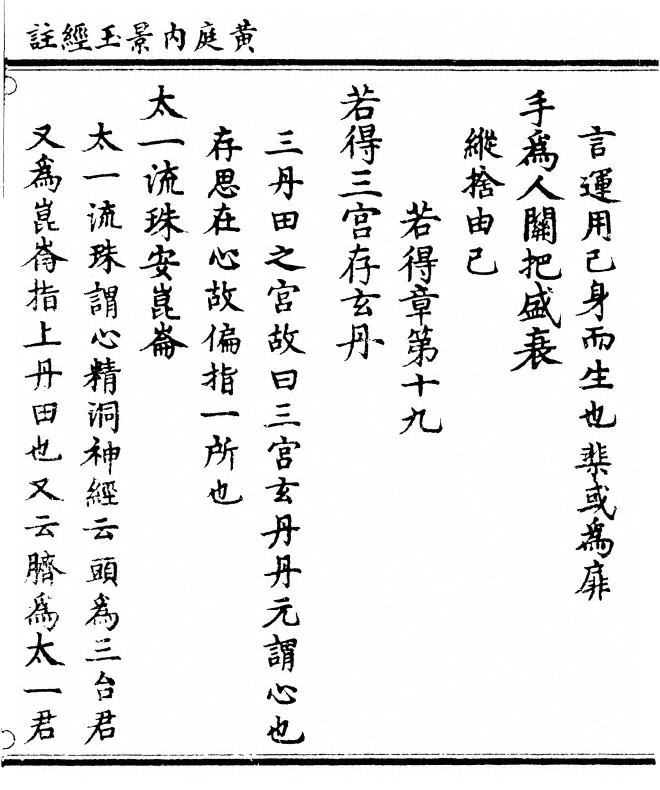 黃庭內景玉經註
言運用己身而生也棐或爲扉
手爲人關把盛衰
縱捨由己
若得章第十九
若得三宮存玄丹
三丹田之宮故曰三宮玄丹丹元謂心也
存思在心故偏指一所也
太一流珠安崑崙
太一流珠謂心精洞神經云頭爲三台君
又爲崑崙指上丹田也又云臍爲太一君